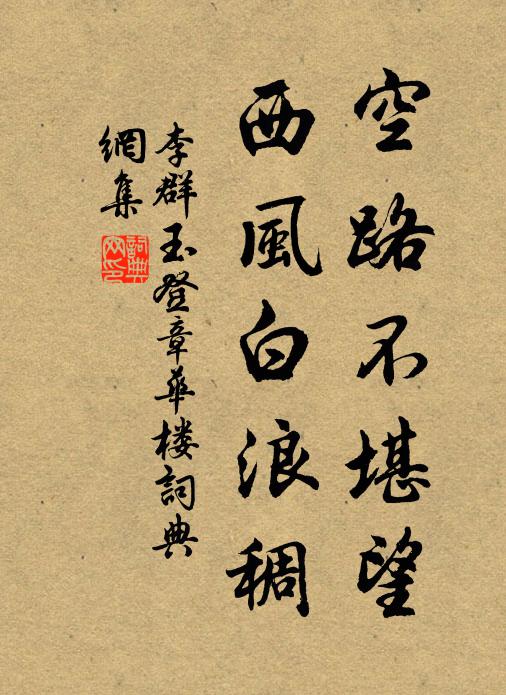 空路不堪望
西風白浪稠
李群玉登章華楼詞典
網集
詞典
网印